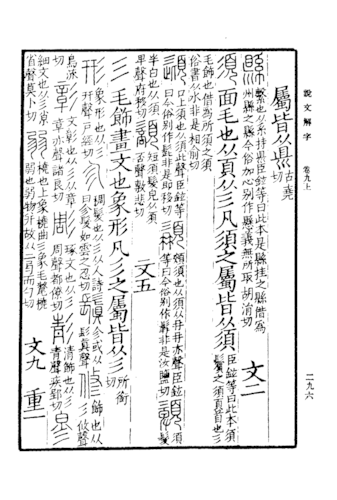 說文解字　卷九上　二九六
屬皆从𥄉 古堯切
縣 繫也从系持𥄉臣鉉等曰此本是縣挂之縣借爲
州縣之縣今俗加心別作懸義無所取胡涓切 文二
須 面毛也从頁从彡凡須之屬皆从須 臣鉉等曰此本須鬢之須頁首也彡
毛飾也借爲所須之須俗書从水非是相俞切
頾 口上須也从須此聲臣鉉等曰今俗別作髭非是卽移切 𩑺 頰須也从須从冄冄亦聲臣鉉等曰今俗別作髯非是汝鹽切 顊 須髮
半白也从須卑聲府移切 短須髮皃从須否聲敷悲切 文五
彡 毛飾畫文也象形凡彡之屬皆从彡 所銜切
形 象形也从彡幵聲戶經切 㐱 稠髮也从彡从人詩曰㐱髮如雲之忍切 鬒 㐱或从髟眞聲 修 飾也从彡攸聲
息流切 彰 文彰也从彡从章章亦聲諸良切 彫 琢文也从彡周聲都僚切 彰飾也从彡青聲疾郢切 㣎
細文也从彡省聲莫卜切 弱 橈也上象橈曲彡象毛氂橈弱也弱物并故从二而勺切 文九 重一